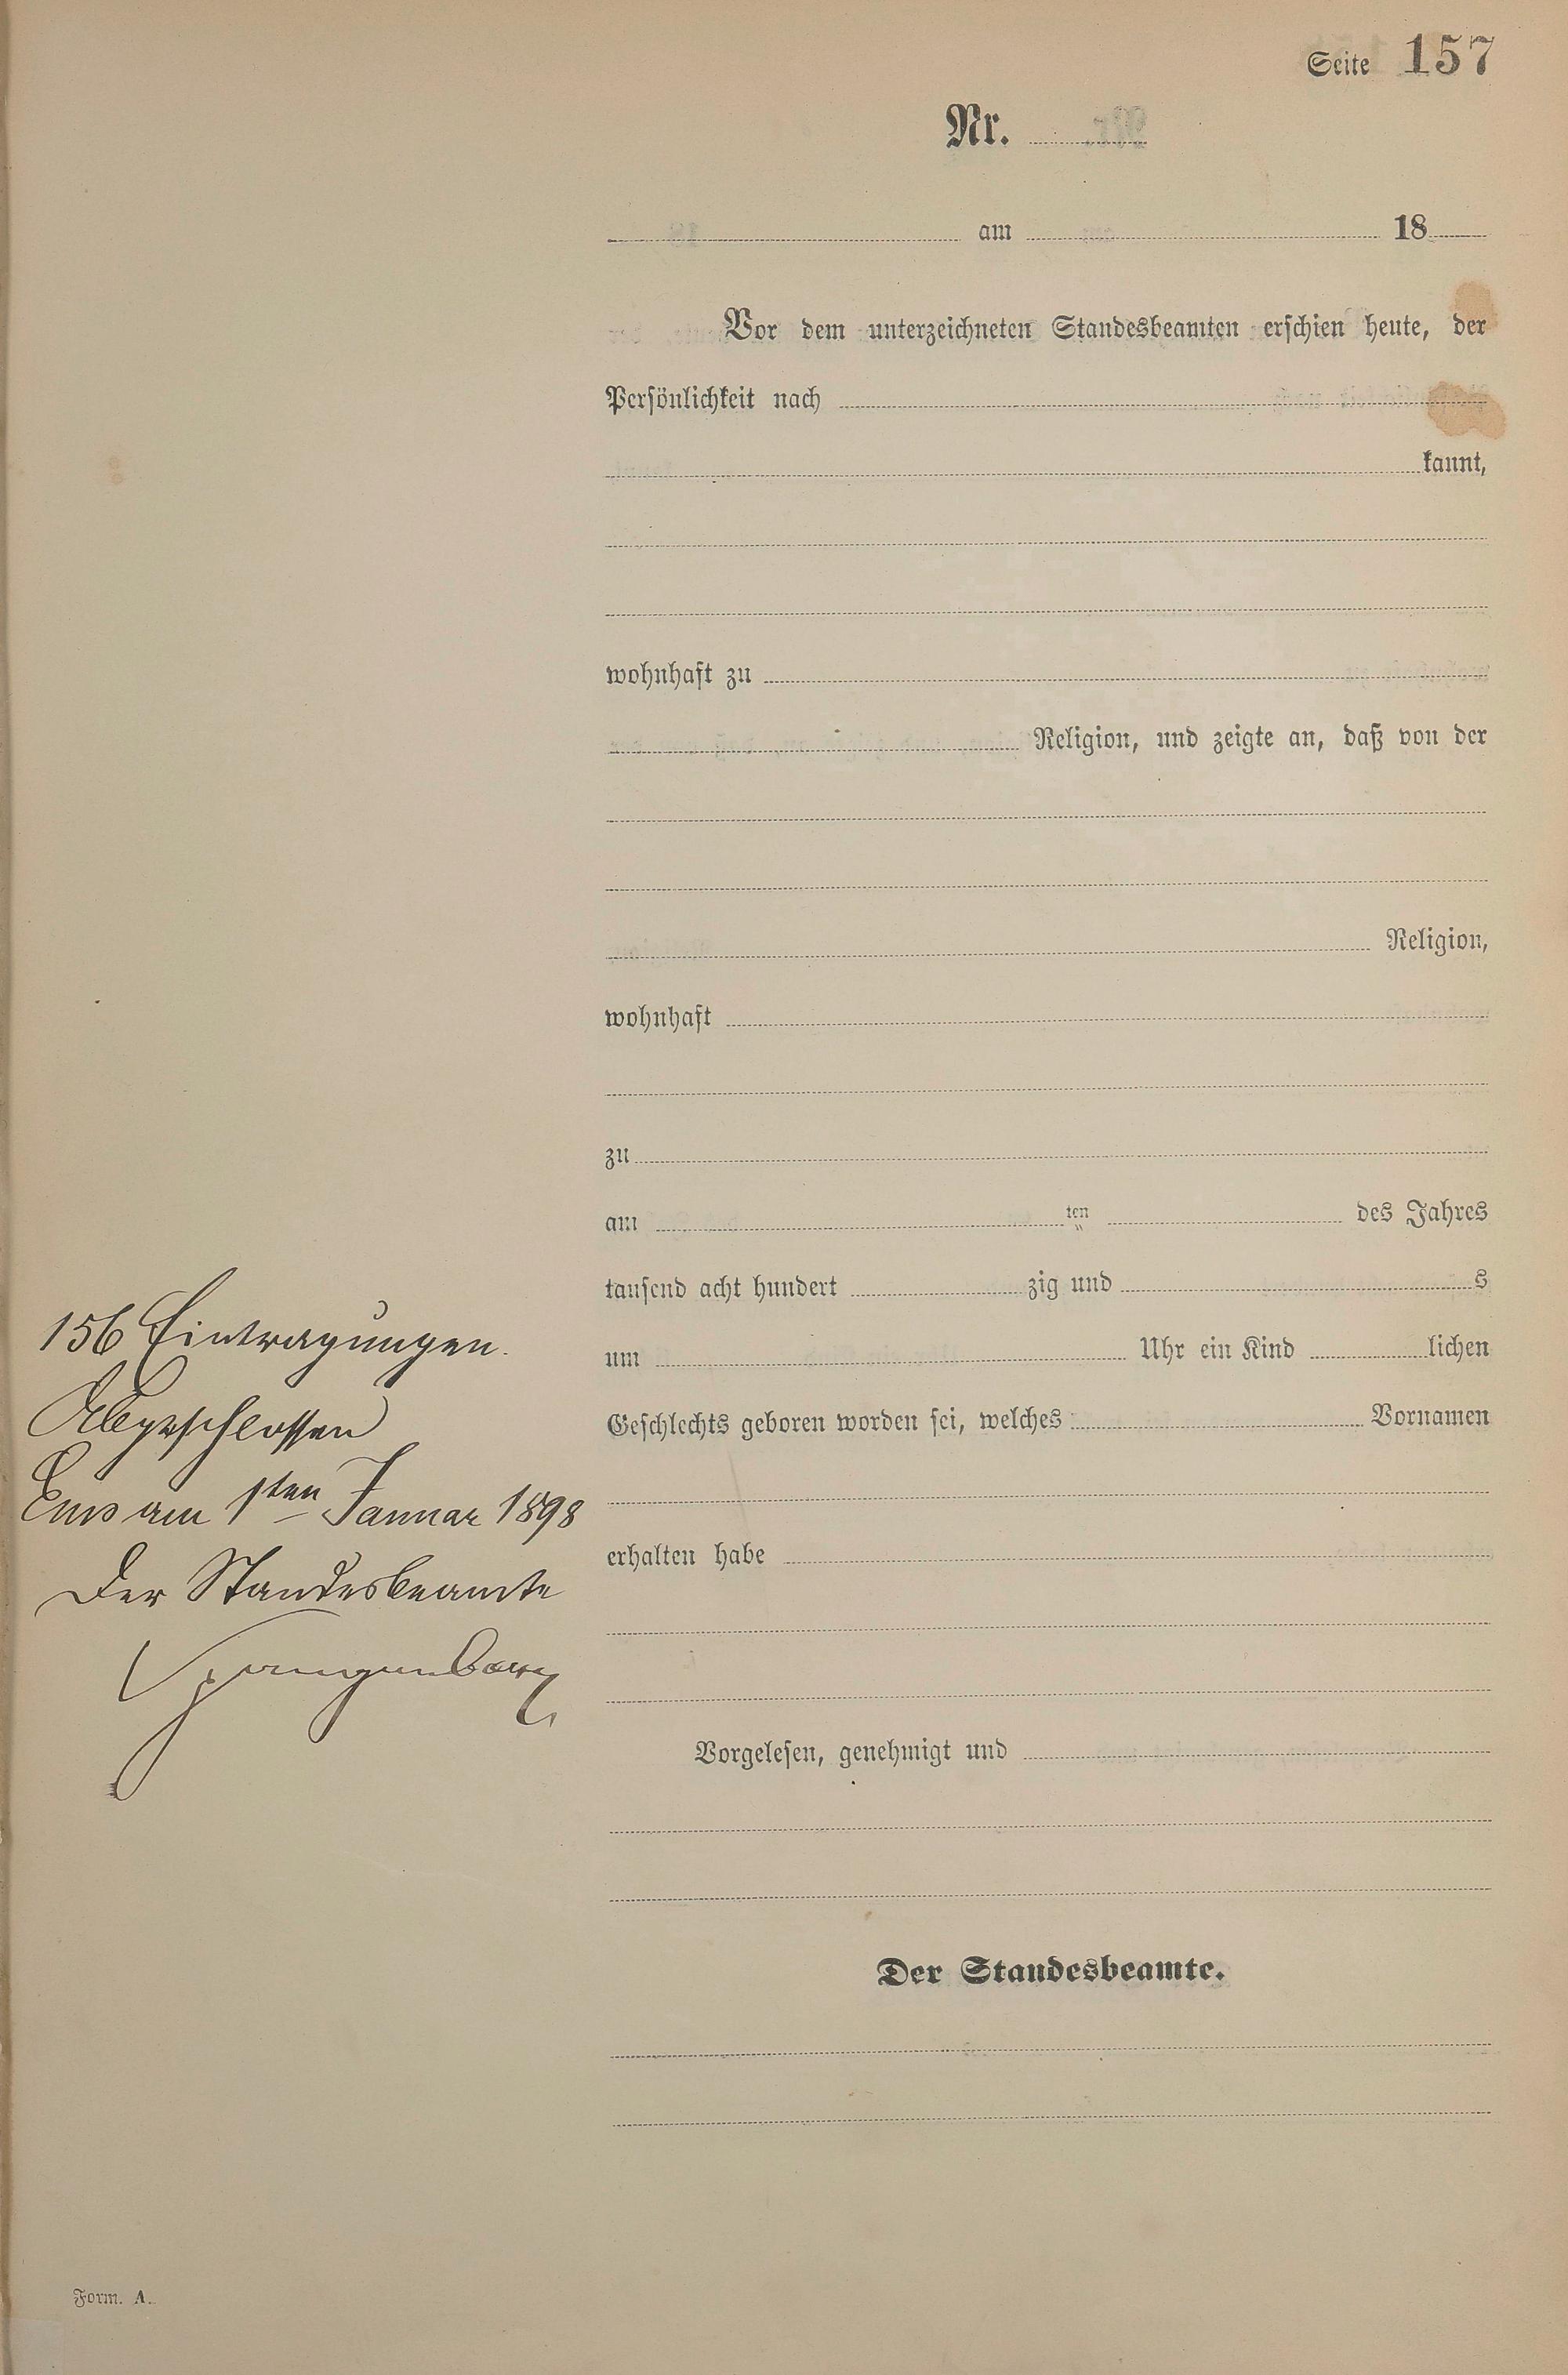 Seite 157
Nr.
am 18
Vor dem unterzeichneten Standesbeamten erschien heute, der
Persönlichkeit nach
kannt,
wohnhaft zu
Religion, und zeigte an, daß von der
Religion,
wohnhaft
zu
am ten des Jahres
tausend acht hundert zig und s
um Uhr ein Kind lichen
Geschlechts geboren worden sei, welches Vornamen
erhalten habe
Vorgelesen, genehmigt und
Der Standesbeamte.
156 Eintragungen.
Abgeschlossen
Ems am 1ten Januar 1898
Der Standesbeamte
Form. A.